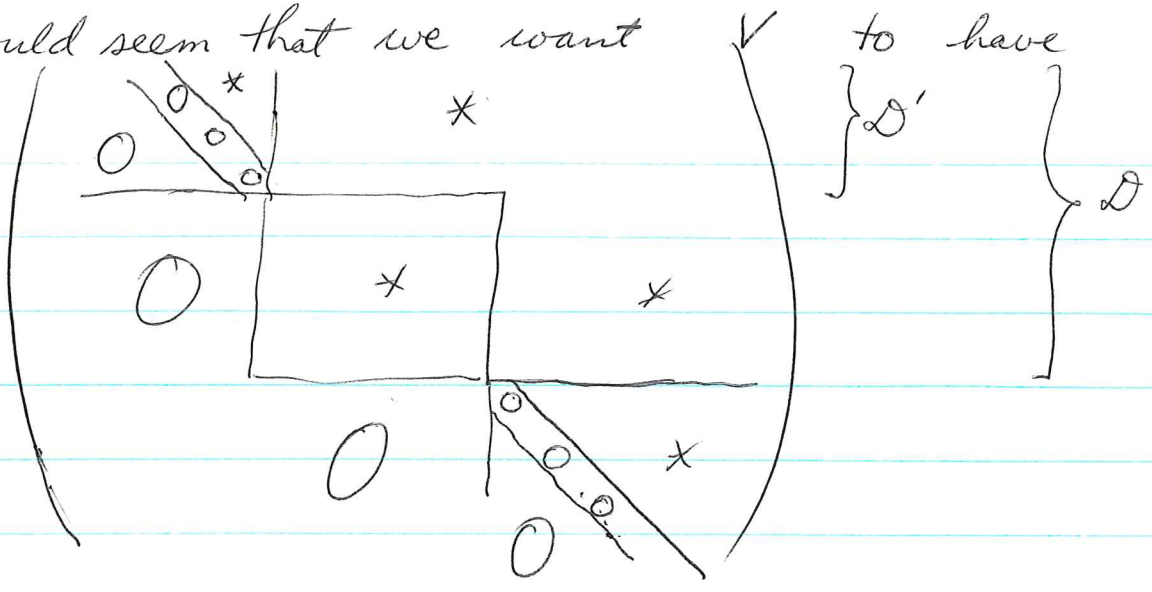 uld seem that we want V to have
O * *
O O O
} D'
} D
O * *
O O O O O *